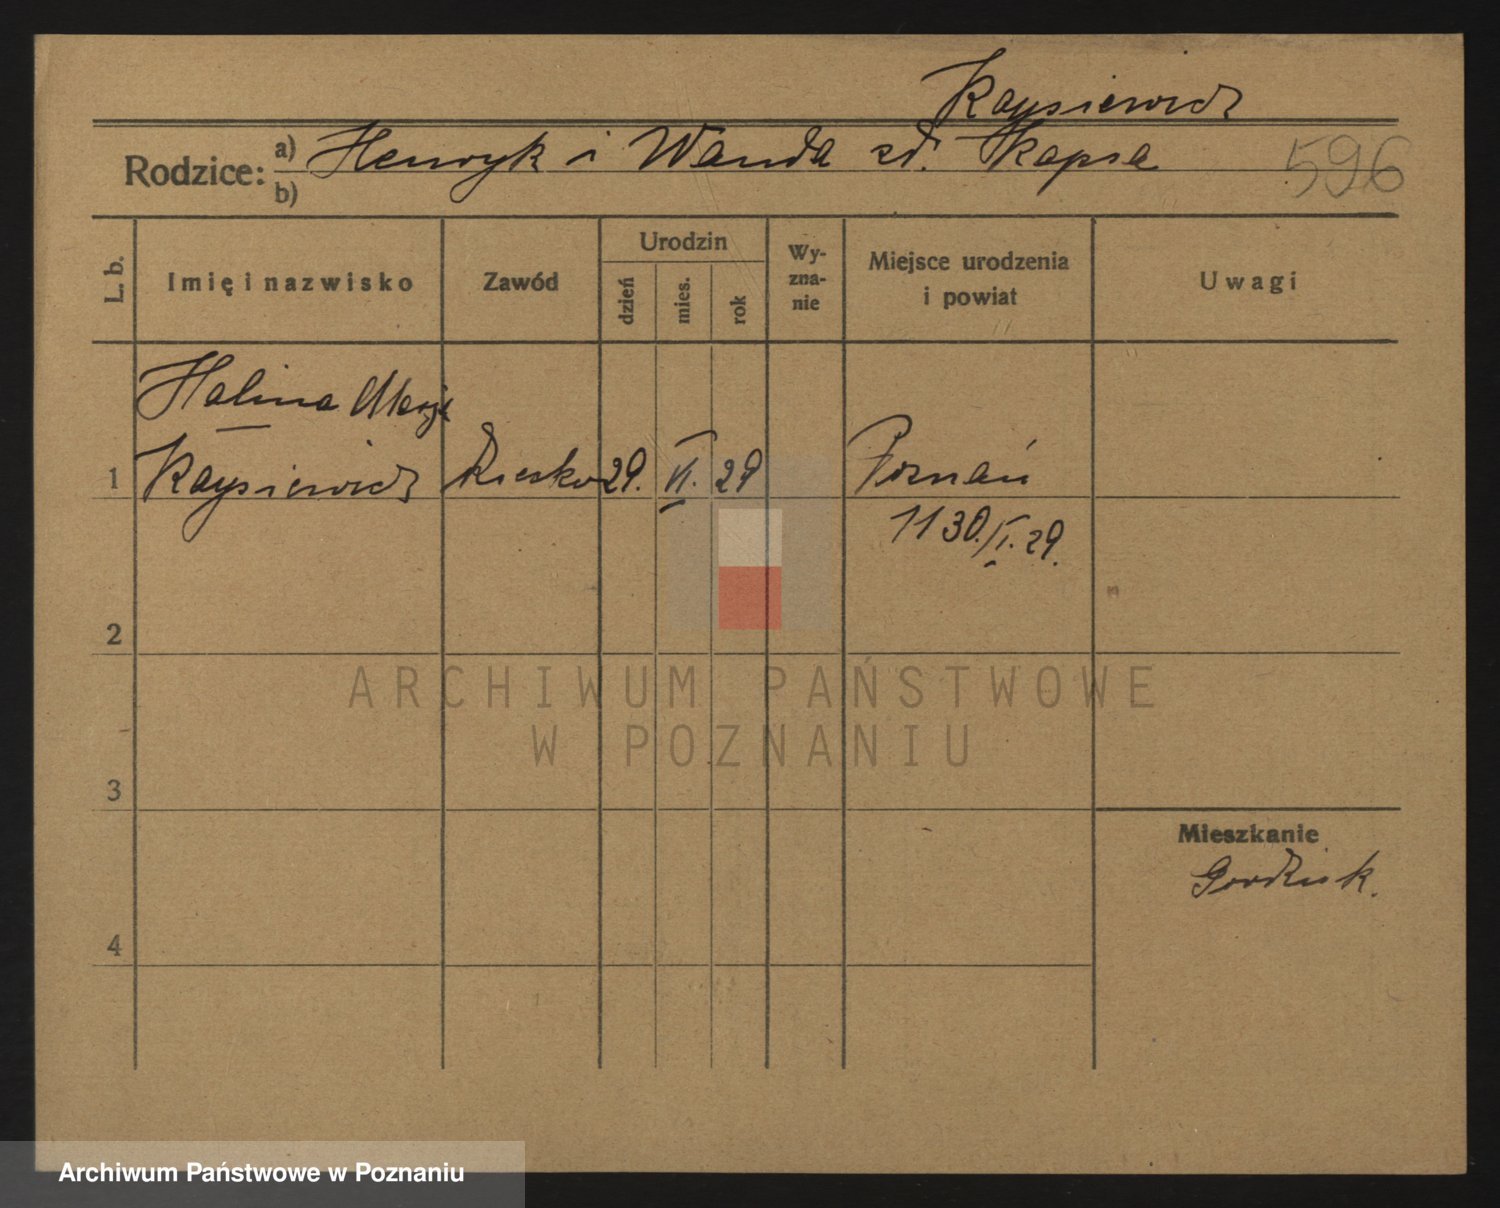 Kaysiewicz
Rodzice: a) Henryk i Wanda zd. Kapsa
b)
596
L. b.
Imię i nazwisko
Zawód
Urodzin
dzień
mies.
rok
Wy-
zna-
nie
Miejsce urodzenia
i powiat
Uwagi
Halina
1 Kaysiewicz 29. VI. 29 Poznań
1130./I. 29.
2
ARCHIWUM PAŃSTWOWE
W POZNANIU
3
Mieszkanie
4
Archiwum Państwowe w Poznaniu